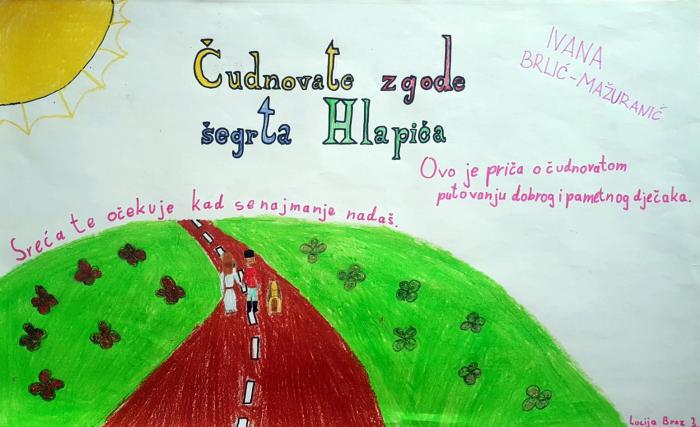 Čudnovate zgode
šegrta Hlapića
IVANA
BRLIĆ-MAŽURANIĆ
Ovo je priča o čudnovatom
putovanju dobrog i pametnog dječaka.
Sreća te očekuje kad se najmanje nadaš.
Lucija Braz 3